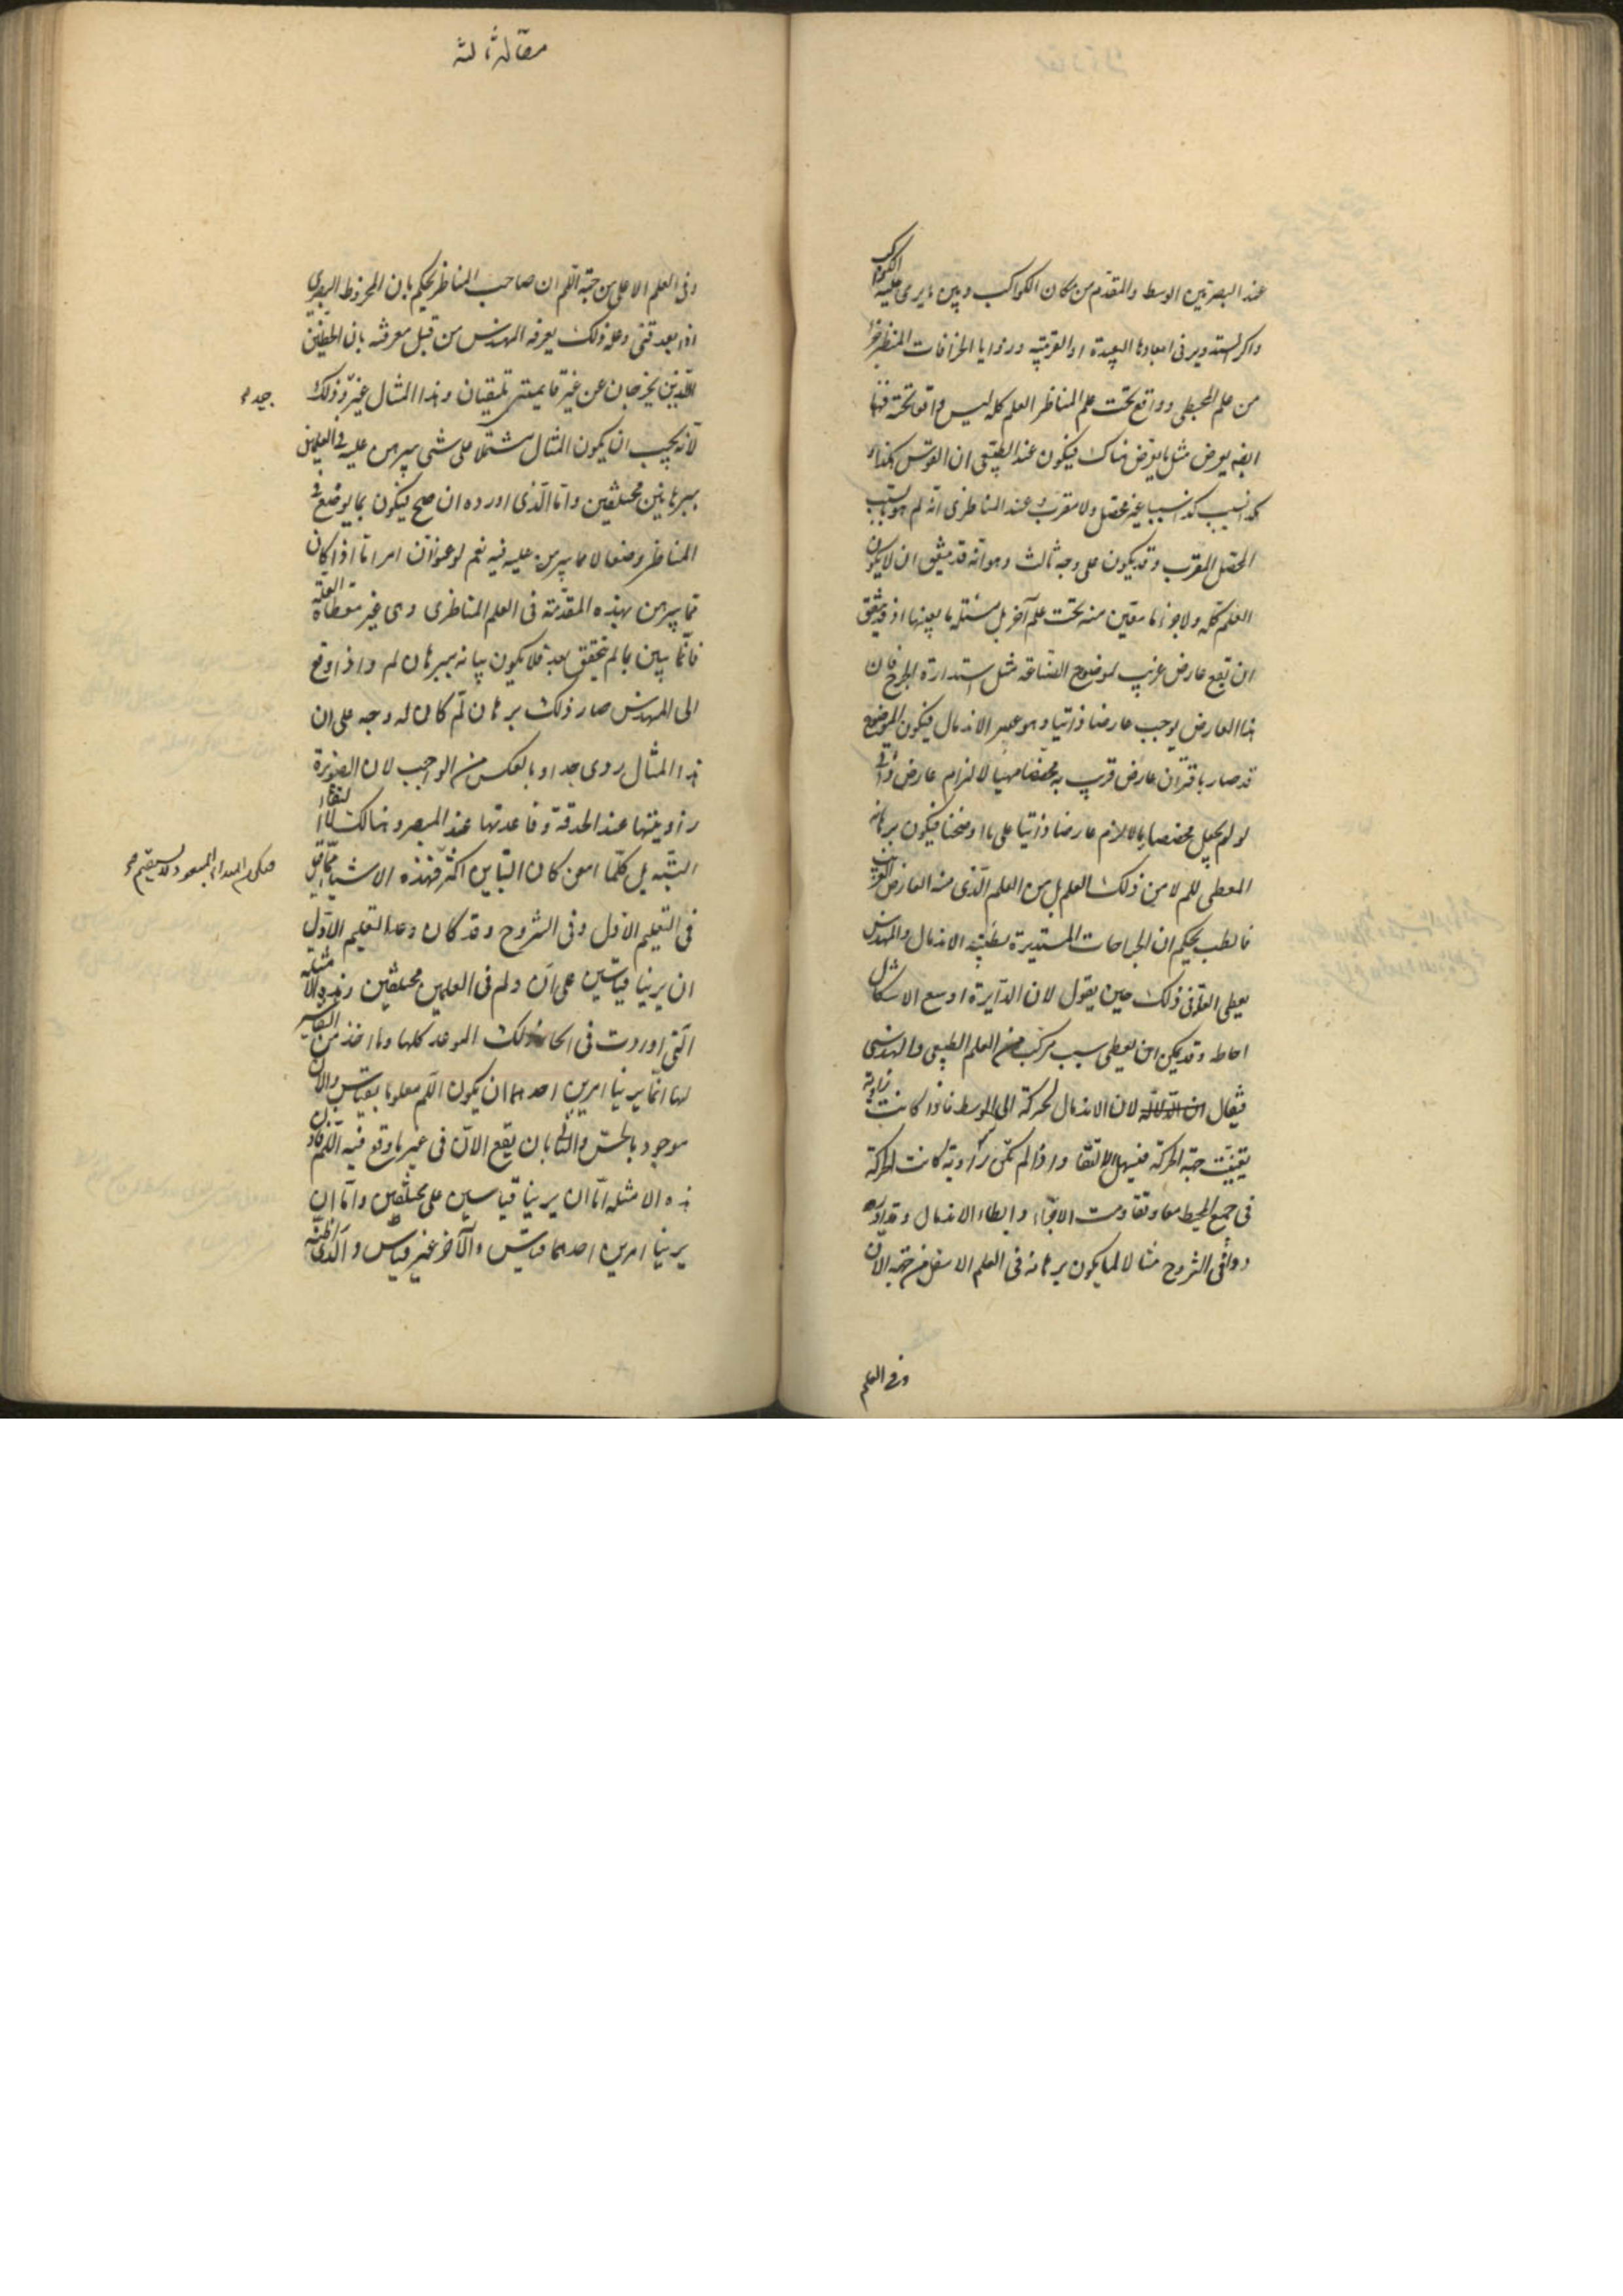 عند البصر تين الوسط والمقدم من مكان الكواكب وبين ما يرى عليه الكواكب
واكر التدوير فى ابعادها البعيدة او القريبة وزوايا انحرافات المنظر جزء
من علم المجسطى وواقع تحت علم المناظر العلم كله ليس واقعا تحته فهنا
ايضه يعرض مثل ما يعرض هناك فيكون عند الطبيعى ان القوس كذا
كذا نسبب كذا سببا غير محصل ولا مقرب وعند المناظرى انه لم هو بالسبب
المحصل المقرب وقد يكون على وجه ثالث وهو انه قد يتفق ان لا يكون
العلم كله ولا جزء ما معين منه تحت علم آخر بل مسئلة ما بعينها اذ قد يتفق
ان يقع عارض غريب لموضوع الصناعة مثل استدارة الجرح فان
هذا العارض يوجب عارضا ذاتيا وهو عسر الاندمال فيكون الموضوع
قد صار باقتران عارض غريب به مخصصا مهيأ لالزام عارض ذاتى
لو لم يجعل مخصصا ما لا لازم عارضا ذاتيا على ما اوضحنا فيكون برهانه
المعطى للم لا من ذلك العلم بل من العلم الذى منه العارض الغريب
فالطب يحكم ان الجراحات المستديرة بطيئة الاندمال والمهندس
يعطى العلة فى ذلك حين يقول لان الدايرة اوسع الاشكال
احاطة وقد يمكن ان يعطى سبب مركب من العلم الطبيعى والهندسى
فيقال ان الدلالة لان الاندمال لحركة الى الوسط فاذا كانت زاوية
تعينت جهة الحركة فيسهل الالتقاء واذا لم تكن زاوية كانت الحركة
فى جميع المحيط معا وتقاومت الاجزاء وابطاء الاندمال وقد اورد
دوا فى الشروح مثالا لما يكون برهانه فى العلم الاسفل من جهة الان
وفى العلم
مقالة ثالثة
وفى العلم الاعلى من جهة اللم ان صاحب المناظر يحكم بان المخروط البصرى
اذا بعد فنى وعلة ذلك يعرفه المهندس من قبل معرفته بان الخطين
اللذين يخرجان عن غير قايمتين يلتقيان وهذا المثال غير وذلك
جيد
لانه يجب ان يكون المثال مشتملا على شى يبرهن عليه فى العلمين
ببرهانين مختلفين واما الذى اورده ان صح فيكون مما يوضع فى
المناظر وضعا لا مما يبرهن عليه فيه نعم لو عنوا ان امرا ما اذا كان
مما يبرهن بهذه المقدمة فى العلم المناظرى وهى غير معطاة العلة
فانما يبين بما لم يتحقق بعد فلا يكون بيانه ببرهان لم واذا وقع
الى المهندس صار ذلك برهان لم كان له وجه على ان
هذا المثال ردى جدا وبالعكس من الواجب لان الصنوبرة
زاويتها عند الحدقة وقاعدتها عند المبصر وهنالك لا التقاء
البتة بل كلما امعن كان التباين اكثر فهذه الاشياء مما قيل
فى التعليم الاول وفى الشروح وقد كان وعد التعليم الاول
ان يرينا قياسين على ان ولم فى العلمين مختلفين وهذه الامثلة
التى اوردت فى الحال ذلك الموعد كلها وما اخذ من التفاسير
لها انما يرينا امرين احدهما ان يكون اللم معلوما بقياس والان
موجود بالحس والثانى بان يقع الان فى غير ما وقع فيه اللم فان
هذه الامثله اما ان يرينا قياسين على مختلفين واما ان
يرينا امرين احدهما قياس والآخر غير قياس والذى اظنه